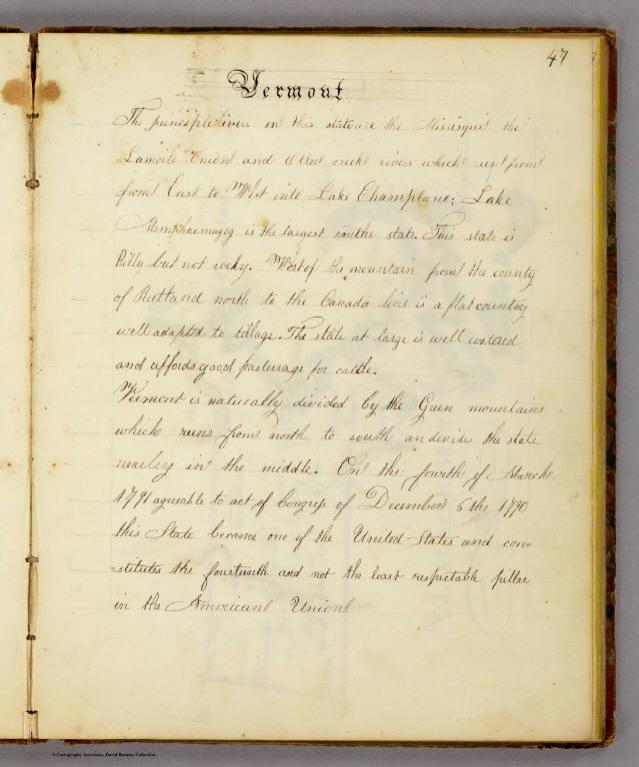 47
Vermont
The principle rivers in this state are the Missisqui the
Lamoile Onion and Otter creek rivers which runs from
from East to West into Lake Champlane; Lake
Memphaemagog is the largest in the state. This state is
Hilly but not rocky. West of the mountain from the county
of Rutland north to the Canada line is a flat country
well adapted to tillage. The state at large is well watered
and affords good pasturage for cattle.
Vermont is naturally divided by the Green mountains
which runs from north to south an divide the state
nearley in the middle. On the fourth of March
1791 agreable to act of Congress of December 6 the 1790
this State became one of the United States and con=
=stitutes the fourteenth and not the least respectable pillar
in the American Union
© Cartography Associates, David Rumsey Collection